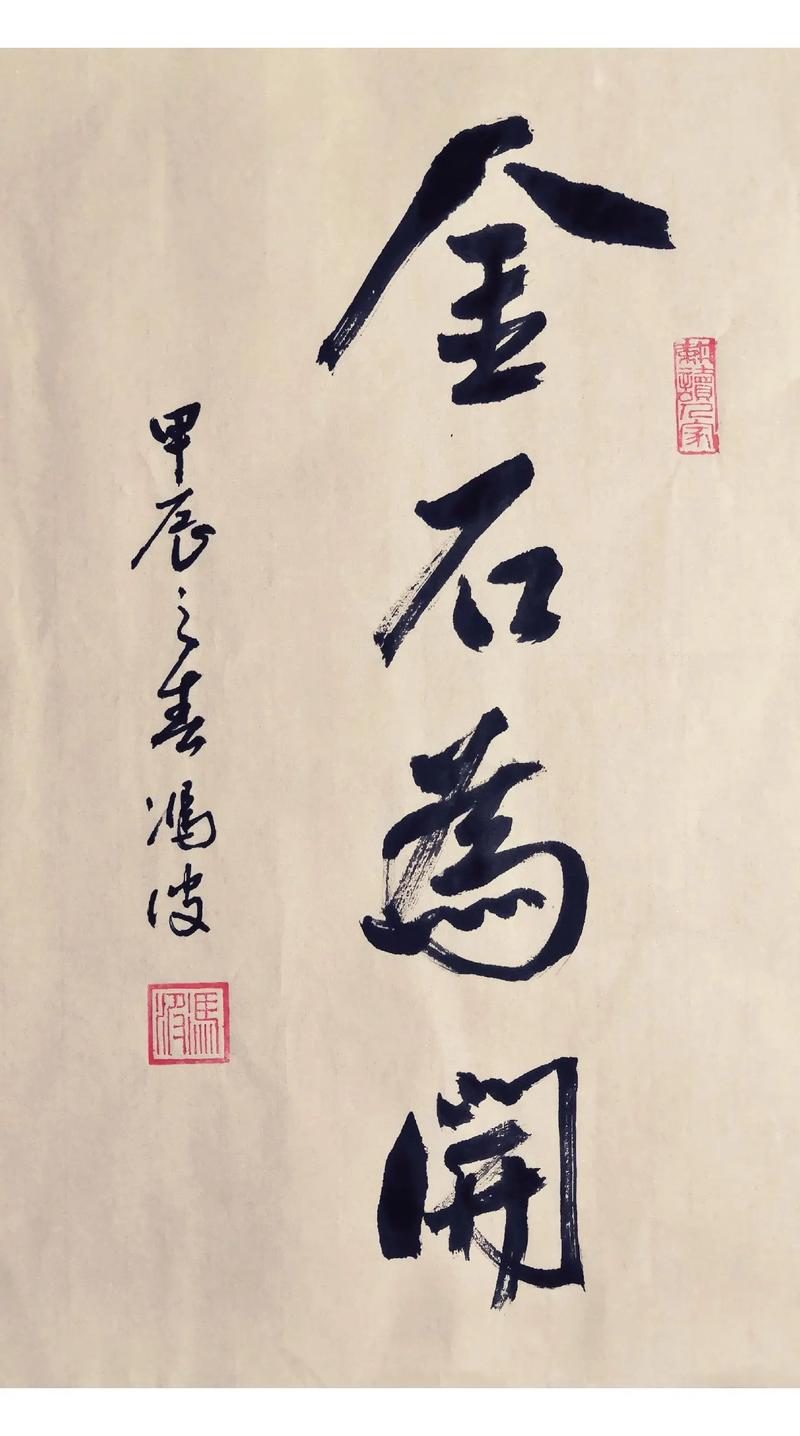 耕讀人家
金石為開
甲辰之春馮波
馮波